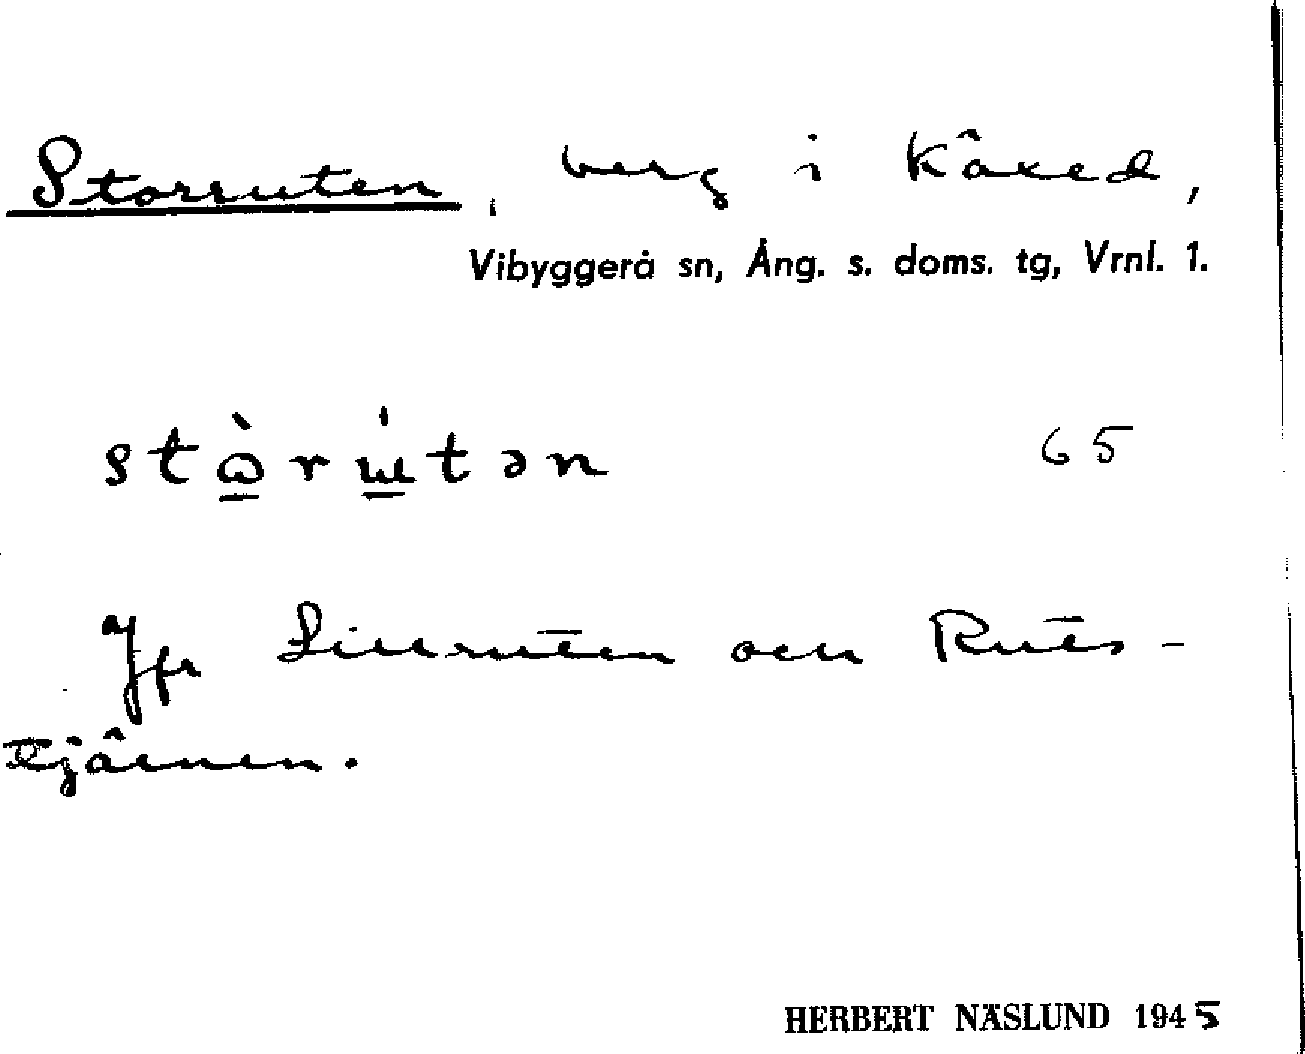 Storruten, berg i Kåxed,
Vibyggerå sn, Ång. s. doms. tg, Vrnl. 1.
stὼ̲rɯ̲́tən 65
Jfr Lillruten och Ruts-
tjärnen.
HERBERT NÄSLUND 1945